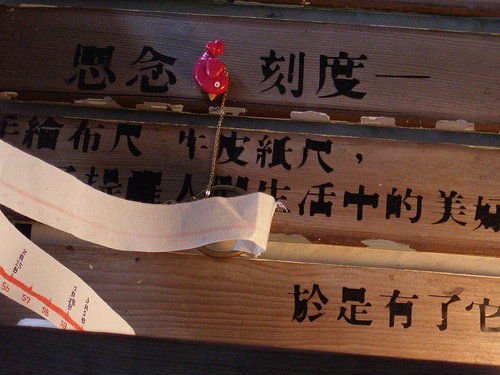 思念刻度—
手繪布尺 牛皮紙尺，
人間生活中的美好
於是有了它
56 57 58 59